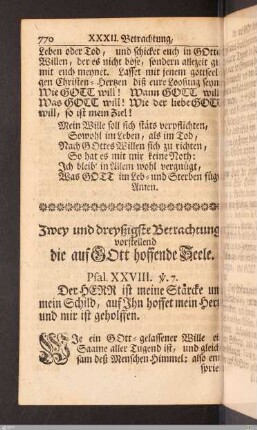 770 XXXII. Betrachtung,
Leben oder Tod, und schicket euch in GOttes
Willen, der es nicht böse, sondern allezeit gut
mit euch meynet. Lasset mit jenem gottseeli-
gen Christen-Hertzen diß eure Loosung seyn:
Wie GOTT will! Wann GOTT will!
Was GOTT will! Wie der liebe GOTT
will, so ist mein Ziel!
Mein Wille soll sich stäts verpflichten,
Sowohl im Leben, als im Tod,
Nach GOttes Willen sich zu richten,
So hat es mit mir keine Noth:
Ich bleib' in Allem wohl vergnügt,
Was GOTT im Leb- und Sterben fügt,
Amen.
Zwey und dreyßigste Betrachtung
vorstellend
die auf GOtt hoffende Seele.
Psal. XXVIII. ℣. 7.
Der HERR ist meine Stärcke und
mein Schild, auf Ihn hoffet mein Hertz
und mir ist geholffen.
WIe ein GOtt-gelassener Wille ein
Saame aller Tugend ist, und gleich-
sam deß Menschen Himmel: also